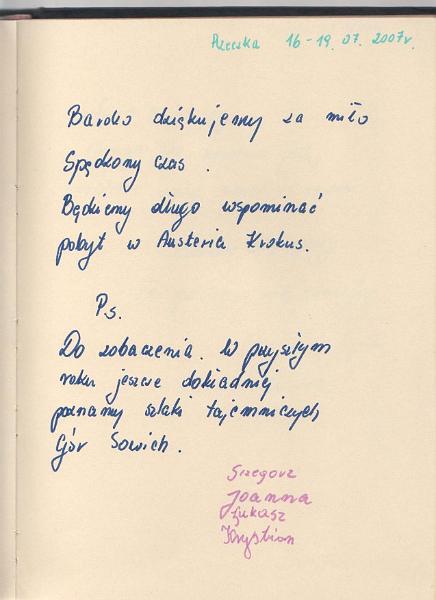 Rzeczka 16-19.07.2007r.
Bardzo dziękujemy za miło
spędzony czas.
Będziemy długo wspominać
pobyt w Austeria Krokus.
Ps.
Do zobaczenia. W przyszłym
roku jeszcze dokładniej
poznamy szlaki tajemniczych
Gór Sowich.
Grzegorz
Joanna
Łukasz
Krystian